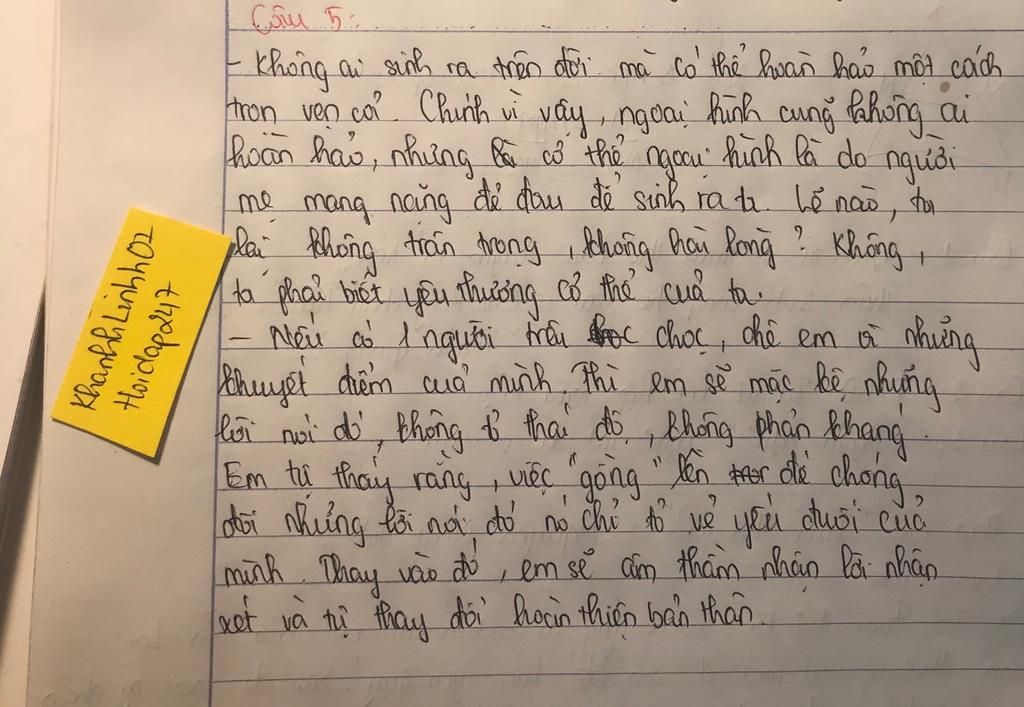 Câu 5:
- Không ai sinh ra trên đời mà có thể hoàn hảo một cách
tron vẹn cả. Chính vì vậy, ngoại hình cũng không ai
hoàn hảo, nhưng cơ thể ngoại hình là do người
mẹ mang nặng đẻ đau để sinh ra ta. Lẽ nào, ta
lại không trân trọng, không hài lòng? Không,
ta phải biết yêu thương cơ thể của ta.
- Nếu có 1 người trêu chọc, chê em vì những
khuyết điểm của mình. Thì em sẽ mặc kệ những
lời nói đó, không tỏ thái độ, không phản kháng.
Em tự thấy rằng, việc "gồng" lên để chống
đối những lời nói đó nó chỉ tỏ vẻ yếu đuối của
mình. Thay vào đó, em sẽ âm thầm nhận lời nhận
xét và tự thay đổi hoàn thiện bản thân.
KhanhhLinhh02
Hoidap247